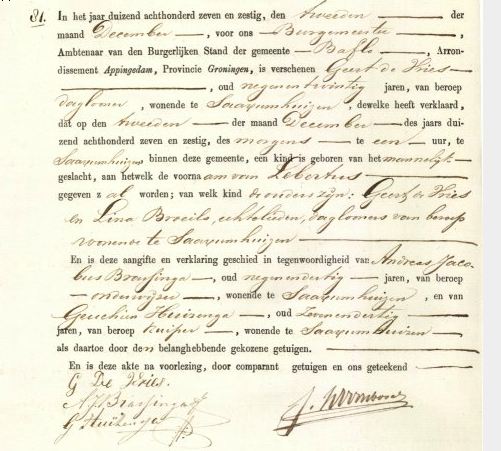 81. In het jaar duizend achthonderd zeven en zestig, den tweeden der
maand December, voor ons Burgemeester,
Ambtenaar van den Burgerlijken Stand der gemeente Baflo, Arron-
dissement Appingedam, Provincie Groningen, is verschenen Geert de Vries
, oud negenentwintig jaren, van beroep
daglooner, wonende te Saaxumhuizen, dewelke heeft verklaard,
dat op den tweeden der maand December des jaars dui-
zend achthonderd zeven en zestig, des morgens te een uur, te
Saaxumhuizen binnen deze gemeente, een kind is geboren van het mannelijk
geslacht, aan hetwelk de voornaam van Lebertus
gegeven zal worden; van welk kind de ouders zijn: Geert de Vries
en Lina Broeils, echtelieden, daglooners van beroep
wonende te Saaxumhuizen
En is deze aangifte en verklaring geschied in tegenwoordigheid van Andreas Jaco-
bus Brassinga, oud negenendertig jaren, van beroep
onderwijzer, wonende te Saaxumhuizen, en van
Geuchien Huizenga, oud tweeendertig
jaren, van beroep kuiper, wonende te Saaxumhuizen
als daartoe door den belanghebbende gekozene getuigen.
En is deze akte na voorlezing, door comparant getuigen en ons geteekend
G De Vries.
A J Brassinga
G Huizenga